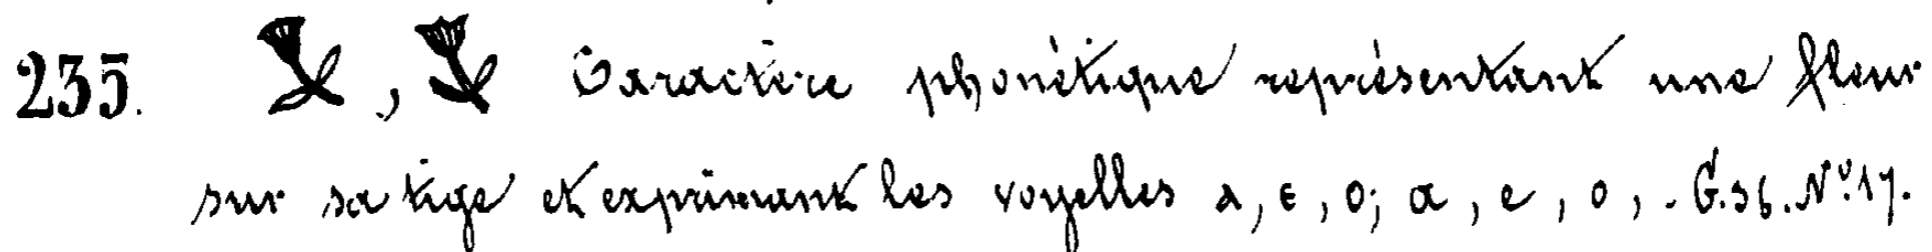 235. , Caractère phonétique représentant une fleur
sur sa tige et exprimant les voyelles ⲁ, ⲉ, ⲟ; a, e, o, . G. 36. N.º 17.